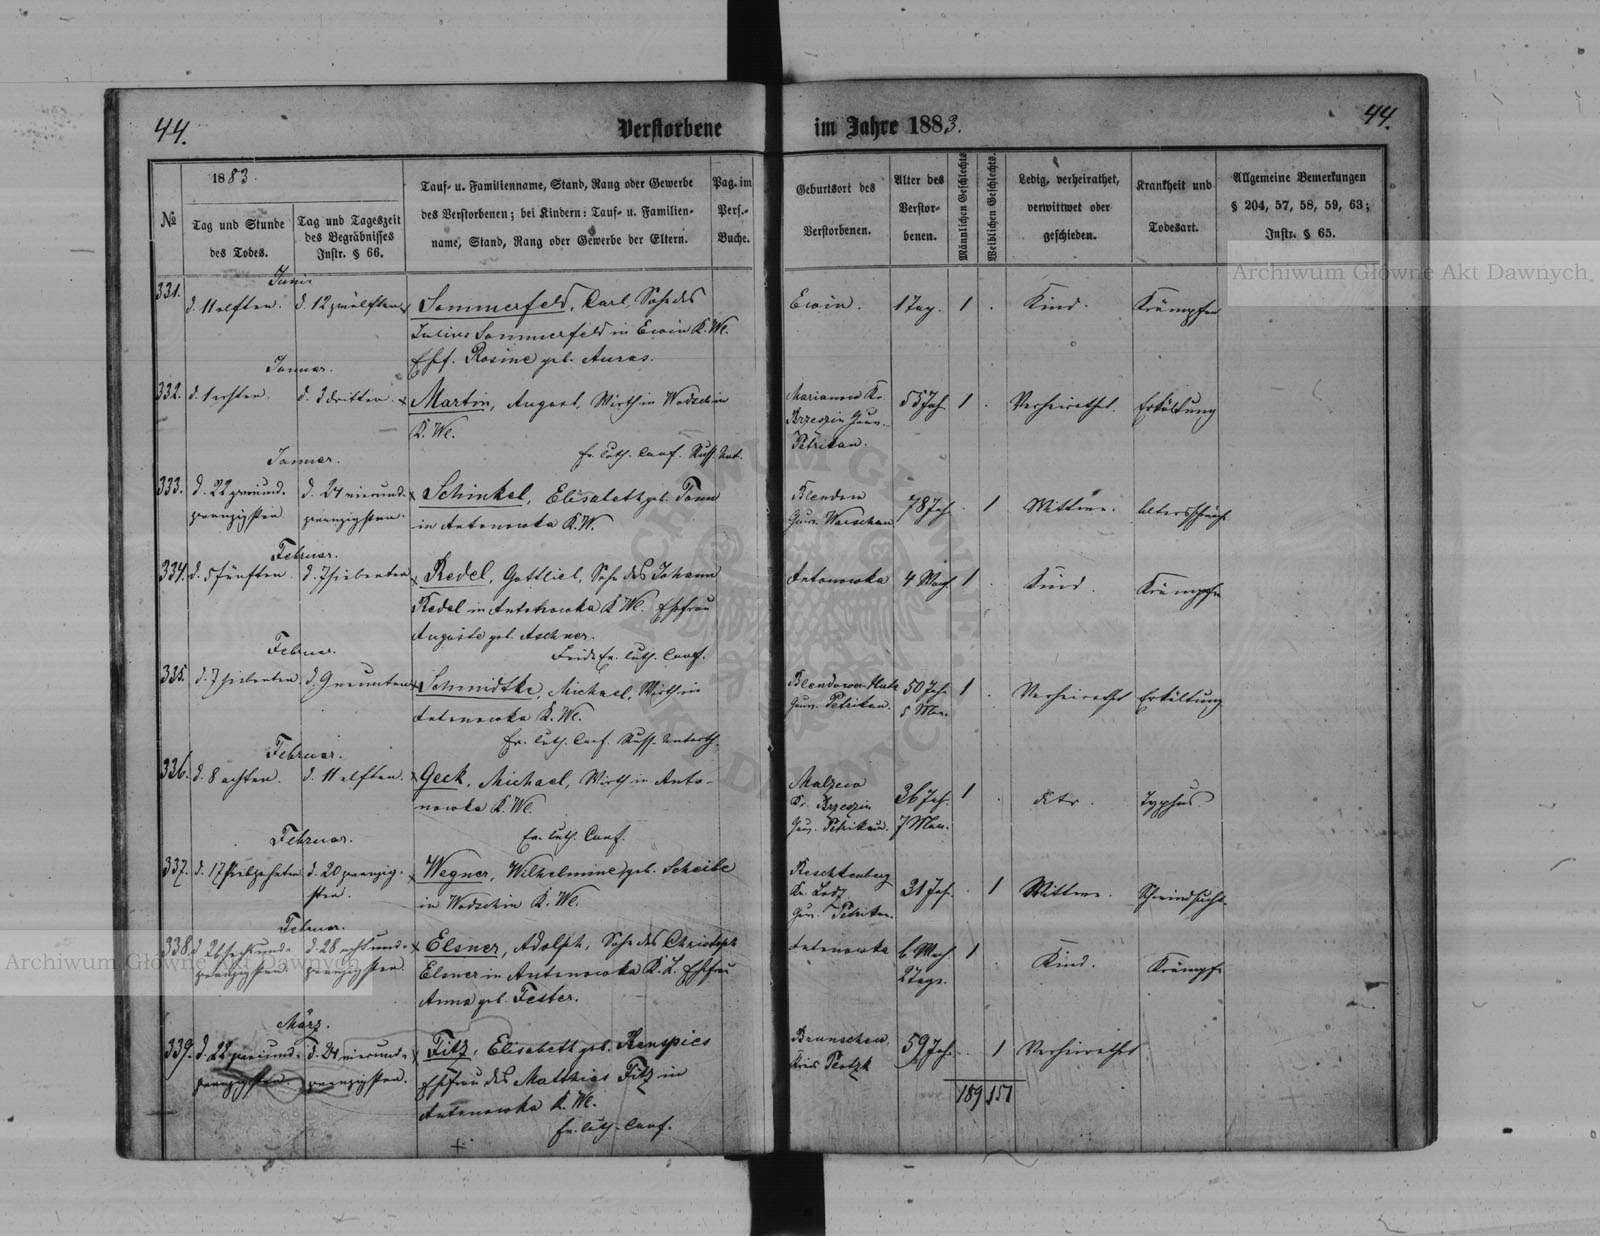 44.
Verstorbene
im Jahre 1883.
44.
№
1883
Tag und Stunde
des Todes.
Tag und Tageszeit
des Begräbnisses
Instr. § 66.
Tauf- u. Familienname, Stand, Rang oder Gewerbe
des Verstorbenen; bei Kindern: Tauf- u. Familien-
name, Stand, Rang oder Gewerbe der Eltern.
Pag. im
Pers.-
Buche.
Geburtsort des
Verstorbenen.
Alter des
Verstor-
benen.
Männlichen Geschlechts
Weiblichen Geschlechts.
Ledig, verheirathet,
verwittwet oder
geschieden.
Krankheit und
Todesart.
Allgemeine Bemerkungen
§ 204, 57, 58, 59, 63;
Instr. § 65.
331.
d. 11 elften. d. 12 zwölften
Sommerfeld, Carl, Sohn des
Julius Sommerfeld in K. We.
Ehf. Rosine geb. Auras.
1 Tag. 1 Kind. Krämpfen
Januar.
332. d. 1 ersten. d. 3 dritten.
Martin, August, Wirth in Wodschin
K. We.
Ev. luth. Conf. Russ. Unt.
Petrikau.
55 Jah. 1 Verheirathet. Erkältung
Januar.
333. d. 22 zweiund-
zwanzigsten
d. 24 vierund-
zwanzigsten.
Schinkel, Elisabeth geb.
in Antonowka K. W.
Guv. Warschau
78 Jah. 1 Wittwe.
Februar.
334. d. 5 fünften. d. 7 siebenten
Redel, Gottlieb, Sohn des Johann
Redel in Antonowka K. We. Ehefrau
Auguste geb. Aschner.
Ev. luth. Conf.
Antonowka 4 Woch. 1 Kind. Krämpfe
Februar.
335. d. 7 siebenten d. 9 neunten
Schmidtke, Michael, Wirth in
Antonowka K. We.
Ev. luth. Conf. Russ. Unterth.
Guv. Petrikau.
50 Jah.
5 Mon.
1 Verheirathet Erkältung
Februar.
336. d. 8 achten. d. 11 elften.
Geck, Michael, Wirth in Anto-
nowka K. We.
Ev. luth. Conf.
Kr. Brzezin
Guv. Petrikau.
36 Jah.
7 Mon.
1 dito. Typhus
Februar.
337. d. 17 siebzehnten d. 20 zwanzig-
sten.
Wegner, Wilhelmine, geb. Scheibe
in Wodschin K. We.
Kr. Lodz
Guv. Petrikau.
31 Jah. 1 Wittwe. Schwindsucht
Februar.
338. d. 26 sechsund-
zwanzigsten.
d. 28 achtund-
zwanzigsten.
Elsner, Adolph, Sohn des Christoph
Elsner in Antonowka K. L. Ehefrau
Anna geb. Fester.
Antonowka
6 Woch
2 Tage.
1 Kind. Krämpfe
März.
339. d. 22 zweiund-
zwanzigsten.
d. 24 vierund-
zwanzigsten.
Fitz, Elisabeth geb.
Ehefrau des Matthias Fitz in
Antonowka K. We.
Ev. luth. Conf.
59 Jah. 1 Verheirathet
189 151
Archiwum Główne Akt Dawnych
Archiwum Główne Akt Dawnych